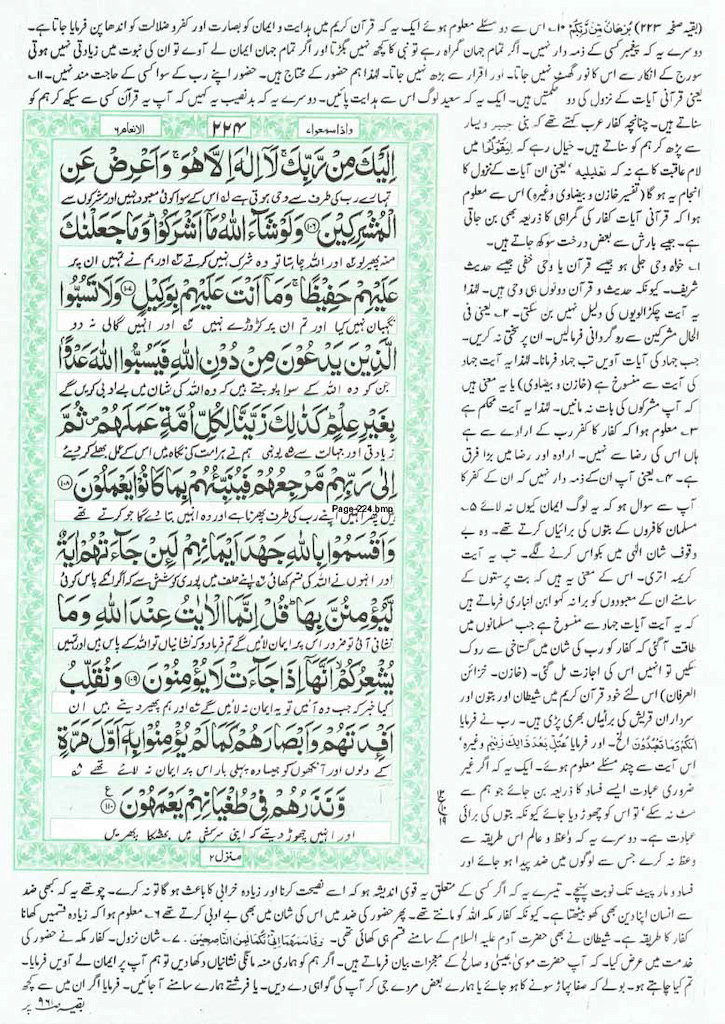 (بقیہ صفحہ ۲۲۳) بُرْهَانٌ مِّنْ رَّبِّكُمْ ۱۰۔ اس سے دو مسئلے معلوم ہوئے ایک یہ کہ قرآن کریم میں ہدایت و ایمان کو بصارت اور کفر و ضلالت کو اندھا پن فرمایا جاتا ہے۔
دوسرے یہ کہ پیغمبر کسی کے ذمہ دار نہیں۔ اگر تمام جہان گمراہ رہے تو نبی کا کچھ نہیں بگڑتا اور اگر تمام جہان ایمان لے آوے تو ان کی نبوت میں زیادتی نہیں ہوتی
سورج کے انکار سے اس کا نور گھٹ نہیں جاتا۔ اور اقرار سے بڑھ نہیں جاتا۔ لہٰذا ہم حضور کے محتاج ہیں۔ حضور اپنے رب کے سوا کسی کے حاجت مند نہیں۔ ۱۱۔
یعنی قرآنی آیات کے نزول کی دو حکمتیں ہیں۔ ایک یہ کہ سعید لوگ اس سے ہدایت پائیں۔ دوسرے یہ کہ بدنصیب یہ کہیں کہ آپ یہ قرآن کسی سے سیکھ کر ہم کو
سناتے ہیں۔ چنانچہ کفار عرب کہتے تھے کہ بنی جبیر و یسار
سے پڑھ کر ہم کو سناتے ہیں۔ خیال رہے کہ لِيَقُوْلُوْا میں
لام عاقبت کا ہے نہ کہ تعلیلیہ، یعنی ان آیات کے نزول کا
انجام یہ ہو گا (تفسیر خازن و بیضاوی وغیرہ) اس سے معلوم
ہوا کہ قرآنی آیات کفار کی گمراہی کا ذریعہ بھی بن جاتی
ہے۔ جیسے بارش سے بعض درخت سوکھ جاتے ہیں۔
۱۔ خواہ وحی جلی ہو جیسے قرآن یا وحی خفی جیسے حدیث
شریف۔ کیونکہ حدیث و قرآن دونوں ہی وحی ہیں۔ لہٰذا
یہ آیت چکڑالویوں کی دلیل نہیں بن سکتی۔ ۲۔ یعنی فی
الحال مشرکین سے روگردانی فرمالیں۔ ان پر سختی نہ کریں۔
جب جہاد کی آیات آویں تب جہاد فرمانا۔ لہٰذا یہ آیت جہاد
کی آیت سے منسوخ ہے (خازن و بیضاوی) یا یہ معنی ہیں
کہ آپ مشرکوں کی بات نہ مانیں۔ لہٰذا یہ آیت محکم ہے
۳۔ معلوم ہوا کہ کفار کا کفر رب کے ارادے سے ہے
ہاں اس کی رضا سے نہیں۔ ارادہ اور رضا میں بڑا فرق
ہے۔ ۴۔ یعنی آپ ان کے ذمہ دار نہیں کہ ان کے کفر کا
آپ سے سوال ہو کہ یہ لوگ ایمان کیوں نہ لائے ۵۔
مسلمان کافروں کے بتوں کی برائیاں کرتے تھے۔ وہ بے
وقوف شان الٰہی میں بکواس کرنے لگے۔ تب یہ آیت
کریمہ اتری۔ اس کے معنی یہ ہیں کہ بت پرستوں کے
سامنے ان کے معبودوں کو برا نہ کہو ابن انباری فرماتے ہیں
کہ یہ آیت آیات جہاد سے منسوخ ہے جب مسلمانوں میں
طاقت آگئی کہ کفار کو رب کی شان میں گستاخی سے روک
سکیں تو انہیں اس کی اجازت مل گئی۔ (خازن۔ خزائن
العرفان) اس لئے خود قرآن کریم میں شیطان اور بتوں اور
سرداران قریش کی برائیاں بھری پڑی ہیں۔ رب نے فرمایا
اِنَّكُمْ وَمَا تَعْبُدُوْنَ الخ۔ اور فرمایا عُتُلٍّ بَعْدَ ذٰلِكَ زَنِيْمٍ وغیرہ،
اس آیت سے چند مسئلے معلوم ہوئے۔ ایک یہ کہ اگر غیر
ضروری عبادت ایسے فساد کا ذریعہ بن جائے جو ہم سے
مٹ نہ سکے، تو اس کو چھوڑ دیا جائے کیونکہ بتوں کی برائی
عبادت ہے۔ دوسرے یہ کہ واعظ و عالم اس طریقہ سے
وعظ نہ کرے جس سے لوگوں میں ضد پیدا ہو جائے اور
واذا سمعوا ۷
۲۲۴
الانعام ۶
اِلَيْكَ مِنْ رَّبِّكَ ۚ لَاۤ اِلٰهَ اِلَّا هُوَ ۚ وَاَعْرِضْ عَنِ
تمہارے رب کی طرف سے وحی ہوتی ہے ۱ اس کے سوا کوئی معبود نہیں اور مشرکوں سے
الْمُشْرِكِيْنَ ۝۱۰۶ وَلَوْ شَآءَ اللّٰهُ مَاۤ اَشْرَكُوْا ؕ وَمَا جَعَلْنٰكَ
منہ پھیر لو ۲ اور اللہ چاہتا تو وہ شرک نہیں کرتے ۳ اور ہم نے تمہیں ان پر
عَلَيْهِمْ حَفِيْظًا ۚ وَمَاۤ اَنْتَ عَلَيْهِمْ بِوَكِيْلٍ ۝۱۰۷ وَلَا تَسُبُّوا
نگہبان نہیں کیا اور تم ان پر کڑوڑے نہیں ۴ اور انہیں گالی نہ دو
الَّذِيْنَ يَدْعُوْنَ مِنْ دُوْنِ اللّٰهِ فَيَسُبُّوا اللّٰهَ عَدْوًۢا
جن کو وہ اللہ کے سوا پوجتے ہیں کہ وہ اللہ کی شان میں بے ادبی کریں گے
بِغَيْرِ عِلْمٍ ؕ كَذٰلِكَ زَيَّنَّا لِكُلِّ اُمَّةٍ عَمَلَهُمْ ۪ ثُمَّ
زیادتی اور جہالت سے ۵ یونہی ہم نے ہر امت کی نگاہ میں اس کے عمل بھلے کر دیئے
اِلٰى رَبِّهِمْ مَّرْجِعُهُمْ فَيُنَبِّئُهُمْ بِمَا كَانُوْا يَعْمَلُوْنَ ۝۱۰۸
Page-224.bmp
ہیں پھر انہیں اپنے رب کی طرف پھرنا ہے اور وہ انہیں بتا دے گا جو کرتے تھے
وَاَقْسَمُوْا بِاللّٰهِ جَهْدَ اَيْمَانِهِمْ لَئِنْ جَآءَتْهُمْ اٰيَةٌ
اور انہوں نے اللہ کی قسم کھائی ۶ اپنے حلف میں پوری کوشش سے کہ اگر انکے پاس کوئی
لَّيُؤْمِنُنَّ بِهَا ؕ قُلْ اِنَّمَا الْاٰيٰتُ عِنْدَ اللّٰهِ وَمَا
نشانی آئی تو ضرور اس پر ایمان لائیں گے تم فرما دو کہ نشانیاں تو اللہ کے پاس ہیں اور تمہیں
يُشْعِرُكُمْ ۙ اَنَّهَاۤ اِذَا جَآءَتْ لَا يُؤْمِنُوْنَ ۝۱۰۹ وَنُقَلِّبُ
کیا خبر کہ جب وہ آئیں تو یہ ایمان نہ لائیں گے اور ہم پھیر دیتے ہیں ان
اَفْئِدَتَهُمْ وَاَبْصَارَهُمْ كَمَا لَمْ يُؤْمِنُوْا بِهٖۤ اَوَّلَ مَرَّةٍ
کے دلوں اور آنکھوں کو جیسا وہ پہلی بار اس پر ایمان نہ لائے تھے
وَّنَذَرُهُمْ فِيْ طُغْيَانِهِمْ يَعْمَهُوْنَ ۝۱۱۰
اور انہیں چھوڑ دیتے کہ اپنی سرکشی میں بھٹکا پھریں
منزل ۲
فساد و مار پیٹ تک نوبت پہنچے۔ تیسرے یہ کہ اگر کسی کے متعلق یہ قوی اندیشہ ہو کہ اسے نصیحت کرنا اور زیادہ خرابی کا باعث ہو گا تو نہ کرے۔ چوتھے یہ کہ کبھی ضد
سے انسان اپنا دین بھی کھو بیٹھتا ہے۔ کیونکہ کفار مکہ اللہ کو مانتے تھے۔ پھر حضور کی ضد میں اس کی شان میں بھی بے ادبی کرتے تھے ۶۔ معلوم ہوا کہ زیادہ قسمیں کھانا
کفار کا طریقہ ہے۔ شیطان نے بھی حضرت آدم علیہ السلام کے سامنے قسم ہی کھائی تھی۔ وَقَاسَمَهُمَاۤ اِنِّيْ لَكُمَا لَمِنَ النّٰصِحِيْنَ۔ ۷۔ شان نزول۔ کفار مکہ نے حضور کی
خدمت میں عرض کیا۔ کہ آپ حضرت موسیٰ، عیسیٰ و صالح کے معجزات بیان فرماتے ہیں۔ اگر ہم کو ہماری منہ مانگی نشانیاں دکھا دیں تو ہم آپ پر ایمان لے آویں فرمایا۔
تم کیا چاہتے ہو۔ بولے کہ صفا پہاڑ سونے کا ہو جائے یا ہمارے بعض مردے جی کر آپ کی گواہی دے دیں۔ یا فرشتے ہمارے سامنے آ جائیں۔ فرمایا اگر ان میں سے کچھ
بقیہ صفحہ ۹۶۱ پر